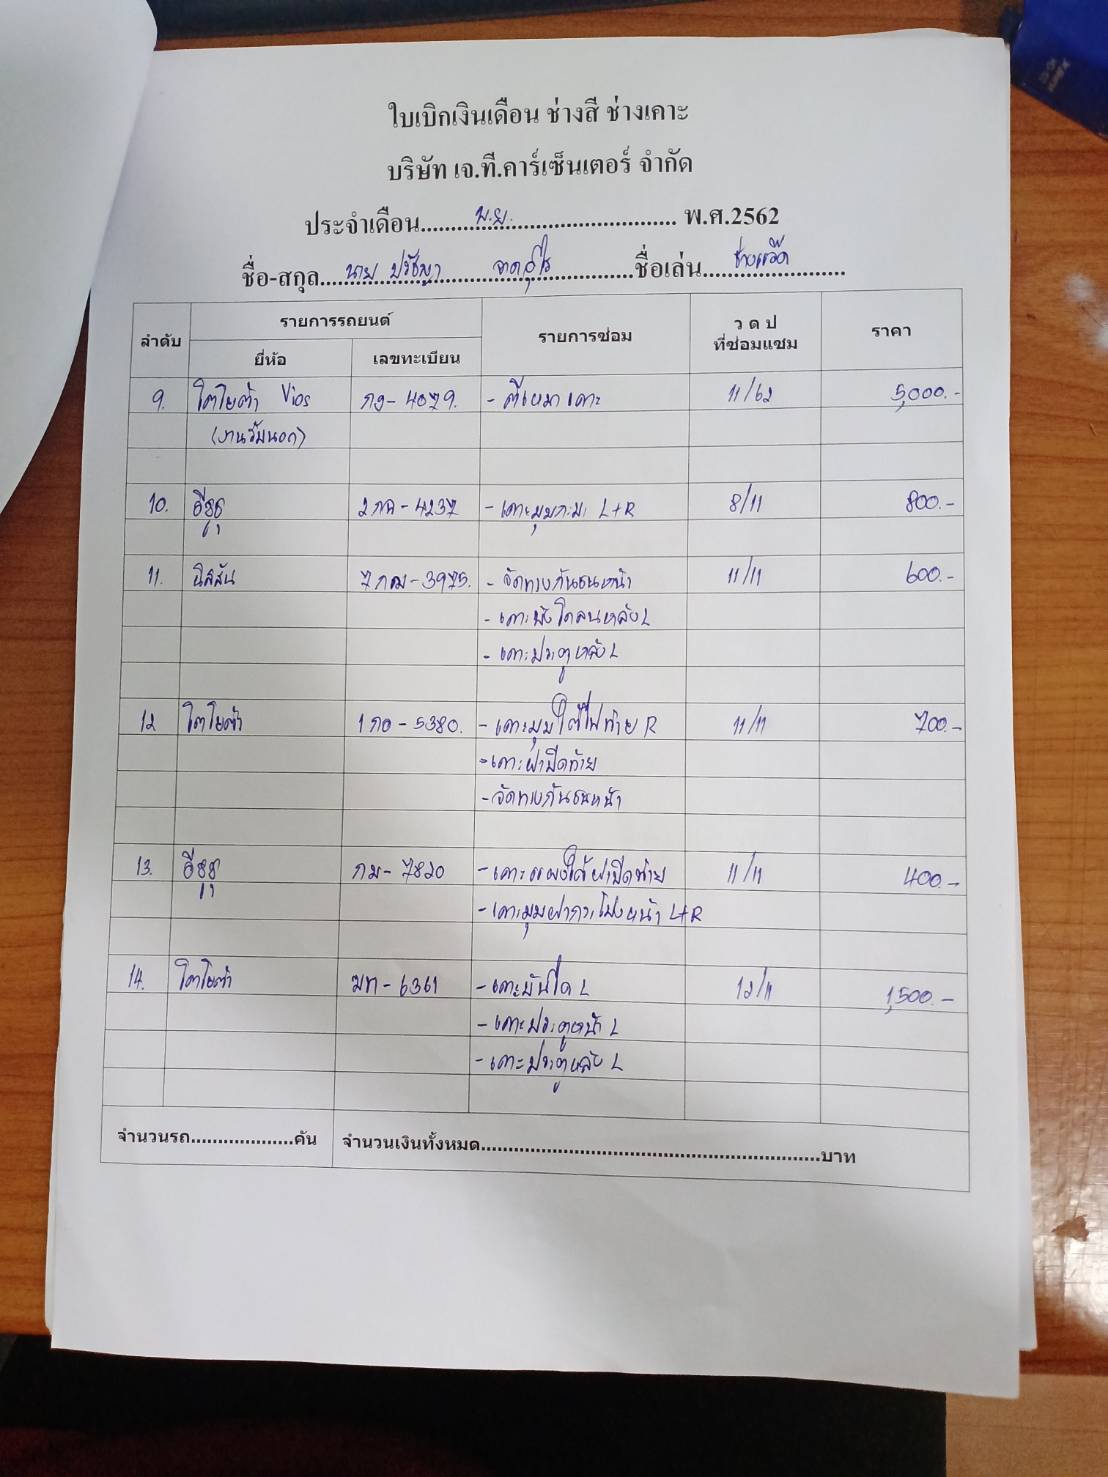 ใบเบิกเงินเดือน ช่างสี ช่างเคาะ
บริษัท เจ.ที.คาร์เซ็นเตอร์ จำกัด
ประจำเดือน......พ.ย.............................. พ.ศ.2562
ชื่อ-สกุล...นาย ปรัชญา.....................ชื่อเล่น...ช่างแอ๊ด.........
ลำดับ รายการรถยนต์ รายการซ่อม ว ด ป ราคา
ยี่ห้อ เลขทะเบียน ที่ซ่อมแซม
9. โตโยต้า Vios กง-4079. - ตีเหมา เคาะ 11/62 5,000.-
(งานวีมนอก)
10. อีซูซุ 2กค-4237 - เคาะมุมกะบะ L+R 8/11 800.-
11. นิสสัน 7กฌ-3975. - จัดทรงกันชนหน้า 11/11 600.-
- เคาะบังโคลนหลัง L
- เคาะประตูหลัง L
12 โตโยต้า 1กอ-5380. - เคาะมุมใต้ไฟท้าย R 11/11 700.-
- เคาะฝาปิดท้าย
- จัดทรงกันชนหน้า
13. อีซูซุ กม-7820 - เคาะแผงใต้ฝาปิดท้าย 11/11 400.-
- เคาะมุมฝากระโปรงหน้า L+R
14. โตโยต้า ฆท-6361 - เคาะบันได L 12/11 1,500.-
- เคาะประตูหน้า L
- เคาะประตูหลัง L
จำนวนรถ...................คัน จำนวนเงินทั้งหมด...............................................................บาท